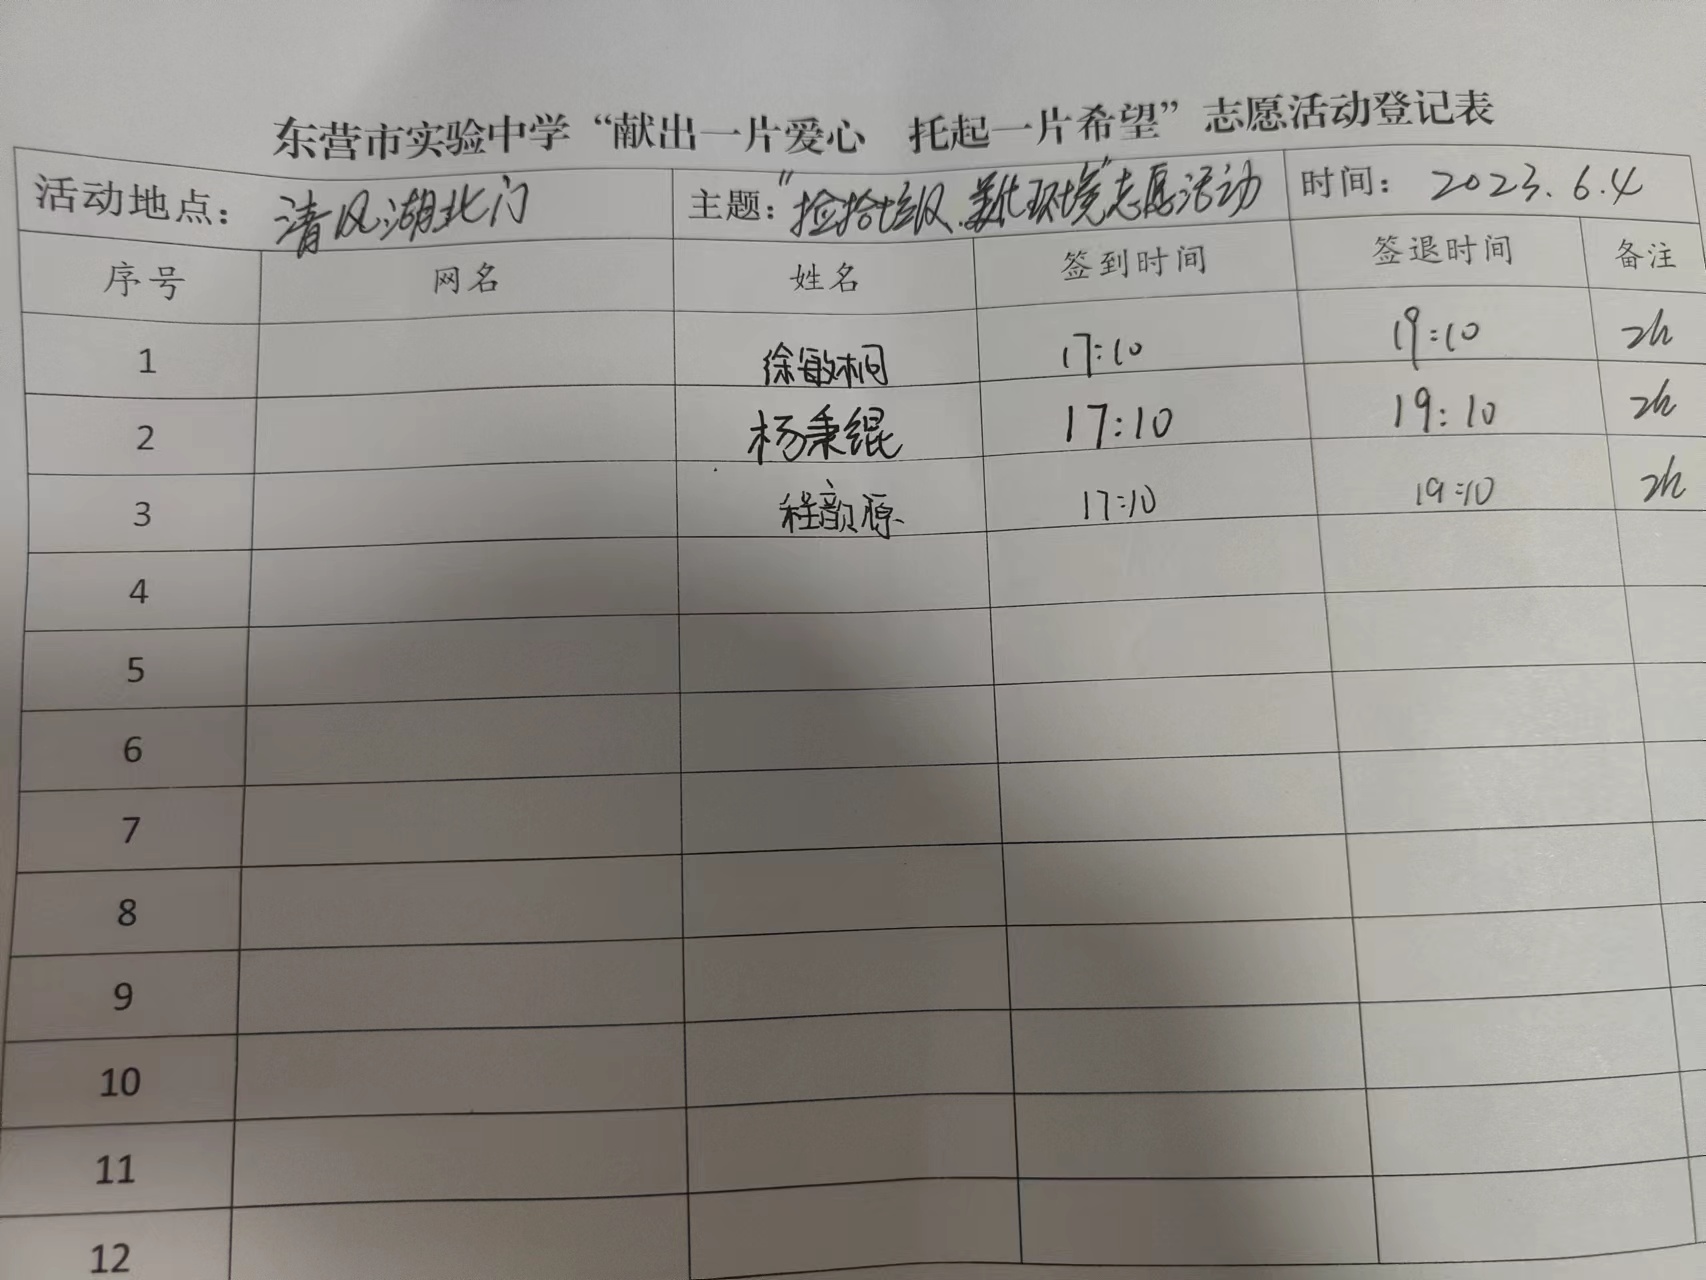 东营市实验中学“献出一片爱心 托起一片希望”志愿活动登记表
活动地点：清风湖北门 主题：“捡拾垃圾.美化环境”志愿活动 时间：2023.6.4
序号 网名 姓名 签到时间 签退时间 备注
1 徐敏桐 17:10 19:10 2h
2 杨秉锟 17:10 19:10 2h
3 程韵源 17:10 19:10 2h
4
5
6
7
8
9
10
11
12